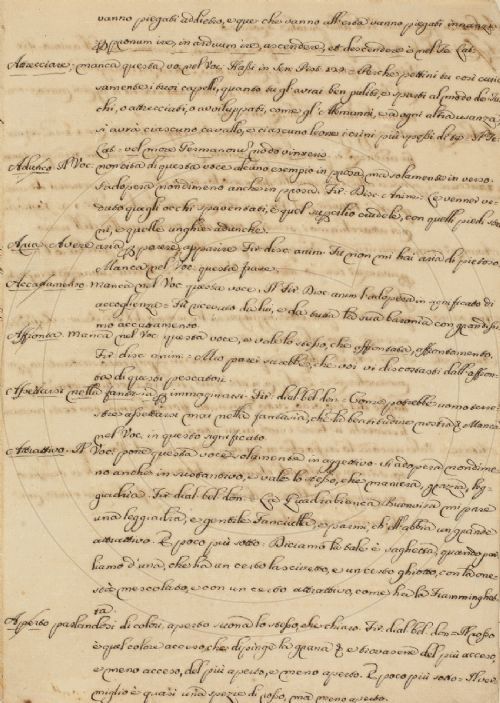 vanno piegati addietro, e que che vanno all'erta vanno piegati innanzi
pronum ire, in arduum ire, ascendere, et descendere
Attrecciare: manca questa vo. nel Voc.
samente i tuoi capelli, quanto tu gli avrai ben puliti, e sparti al modo de Tur
chi, o attrecciati, o avviluppati, come gl'Alemanni, e a ogni altra usanza
si avrà ciascuno cavallo, e ciascuno leone i crini più spessi di te
Adunco. Il Voc. non cita di questa voce alcuno esempio in prosa, ma solamente in verso.
Si adopera nondimeno anche in prosa. Fir. Disc. Anim. E venne ve-
duto quegli occhi spaventati, e quel supercilio crudele, con quelli piedi
ni, e quelle unghie adunche.
Aria. Avere aria parere, apparire Fir. disc. anim. Tu non mi hai aria di pietoso
Manca nel Voc. questa frase.
Accattamento manca nel Voc. questa voce. Il Fir. Disc. anim. l'adopera in significato di
accoglienza Fu ricevuto da lui, e da tutta la sua baronia con grandissi
mo accattamento.
Affronta manca nel Voc. questa voce, e vale lo stesso, che affrontata, affrontamento.
Fir. disc. anim. A me parei sarebbe, che voi vi discostassi dall'affron-
ta di questi pescatori.
Assettarsi nella fantasia immaginarsi. Fir. dial. bel. don. Come potrebbe uomo terre
stre assettarsi mai nella fantasia, che la beatitudine nostra Manca
nel Voc. in questo significato.
Attrattivo. Il Voc. pone questa voce solamente in aggettivo. Si adopera nondime
no anche in sustantivo, e vale lo stesso, che maniera, grazia, leg-
giadria. Fir. dial. bel. don. La Quadrabianca Buonvisa mi pare
una leggiadra, e gentile Fanciulla, e parmi, ch'abbia un grande
attrattivo. E poco più sotto. Diciamo la tale è vaghetta, quando par
liamo d'una, che ha un certo lascivetto, e un certo ghiotto, con la one
stà mescolato, e con un certo attrattivo, come ha la Fiamminghet
ta.
Aperto parlandosi di colori, aperto suona lo stesso, che chiaro. Fir. dial. bel. don. Il rosso
è quel colore acceso, che dipinge la grana e trovasene del più acceso,
e meno acceso, del più aperto, e meno aperto. E poco più sotto. Il ver
miglio è quasi una spezie di rosso, ma meno aperto.